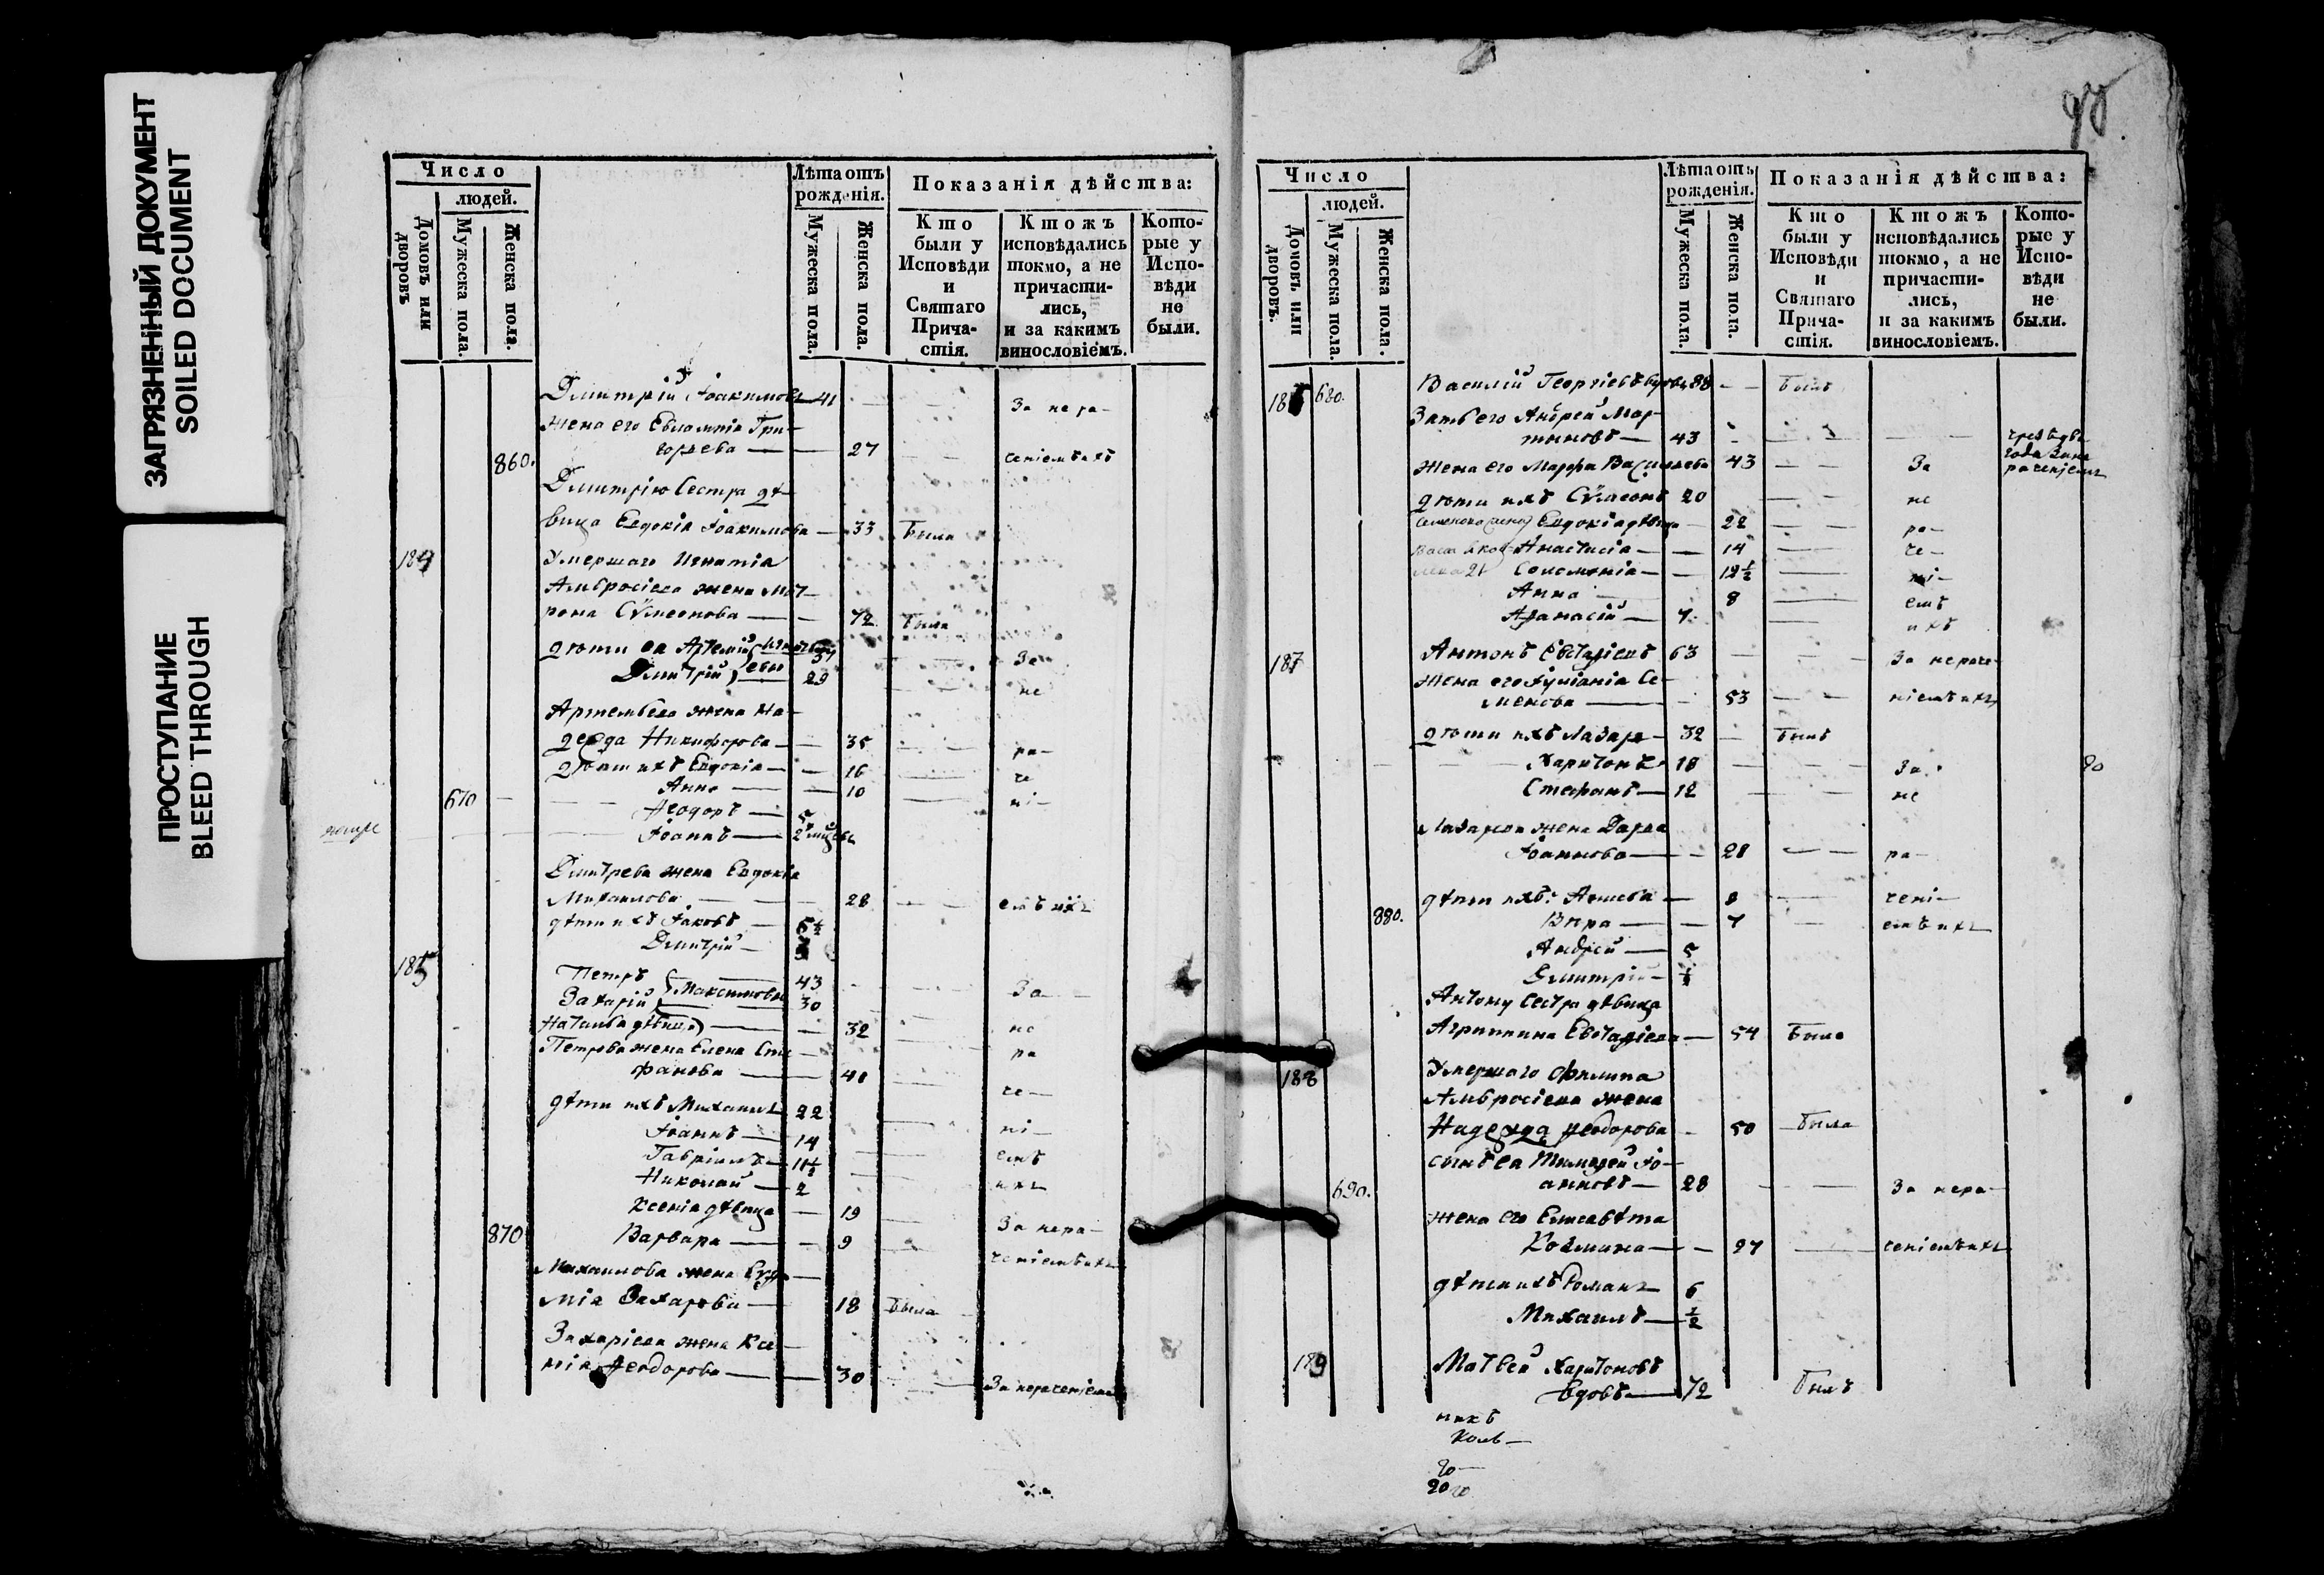 ЗАГРЯЗНЕННЫЙ ДОКУМЕНТ
SOILED DOCUMENT
ПРОСТУПАНИЕ
BLEED THROUGH
Число
людей.
Домовъ или дворовъ
Мужеска пола.
Женска пола.
Лѣта отъ рожденія.
Мужеска пола.
Женска пола.
Показанія дѣйства:
Кто были у Исповѣди и Святаго Причастія.
Ктожъ исповѣдались токмо, а не причастились, и за какимъ винословіемъ.
Которые у Исповѣди не были.
Дмитрій Іоакимовъ 41 За нера-
жена его Евлампія Гри-
860. горьева 27 ченіемъ ихъ
Дмитрію Сестра дѣ-
вица Евдокія Іоакимова 33 была
184 Умершаго Игнатія
Амвросіева жена Мат-
рона Сѵмеонова 72 была
дѣти ея Артемій 37 За
Дмитрій 29 не
Артемьева жена На-
дежда Никифорова 35 ра-
дѣти ихъ Евдокія 16 че
Анна 10 ні-
670 Ѳеодоръ 5
Іоаннъ 2
Дмитрева жена Евдокія
Михаилова 28 емъ ихъ
дѣти ихъ Іаковъ 5½
Дмитрій 3
185 Петръ 43
Захарій } Максимовы 30 За
Наталья дѣвица 32 не
Петрова жена Елена Сте- ра
фанова 40 че-
дѣти ихъ Михаилъ 22
Іоаннъ 14 ні-
Гавріилъ 11½ емъ
Николай 2 ихъ
Ксенія дѣвица 19
870 Варвара 9 За нера-
ченіемъ ихъ
Михаилова жена Евфи-
мія Захарова 18 была
Захаріева жена Ксе-
нія Ѳеодорова 30 За нераченіемъ
Число
людей.
Домовъ или дворовъ.
Мужеска пола.
Женска пола.
Лѣта отъ рожденія.
Мужеска пола.
Женска пола.
Показанія дѣйства:
Кто были у Исповѣди и Святаго Причастія.
Ктожъ исповѣдались токмо, а не причастились, и за какимъ винословіемъ.
Которые у Исповѣди не были.
186 680. Василій Георгіевъ вдовъ 88 былъ
Зять его Андрей Мар-
тыновъ 43
жена его Марфа Васильева 43 За
дѣти ихъ Сѵмеонъ 20 не
Евдокія дѣвица 22 ра-
Анастасія 14 че-
Соломонія 12½ ні-
Анна 8 емъ
Аѳанасій 7 ихъ
187 Антонъ Евстафіевъ 63 За нераче-
жена его Іуліанія Се-
менова 53 ніемъ ихъ
дѣти ихъ Лазарь 32 былъ
Харитонъ 18 За
Стефанъ 12 не
Лазарева жена Дарья
Іоаннова 28 ра-
дѣти ихъ: 8 чені-
880. Вѣра 7 емъ ихъ
Андрей 5
Димитрій ½
Антону Сестра дѣвица
Агрипина Евстафіева 54 была
188 Умершаго Филипа
Амвросіева жена
Надежда Ѳеодорова 50 была
сынъ ея Тимофей Іо-
690. анновъ 28 За нера-
жена его Елисавѣта
Козмина 27 ченіемъ ихъ
дѣти ихъ Романъ 6
Михаилъ ½
189 Матвей Харитоновъ
вдовъ 72 былъ